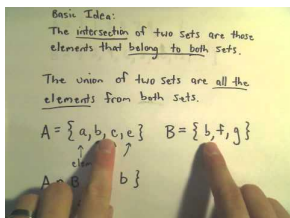 Basic Idea:
The intersection of two sets are those
elements that belong to both sets.
The union of two sets are all the
elements from both sets.
A = { a, b, c, e } B = { b, f, g }
b }